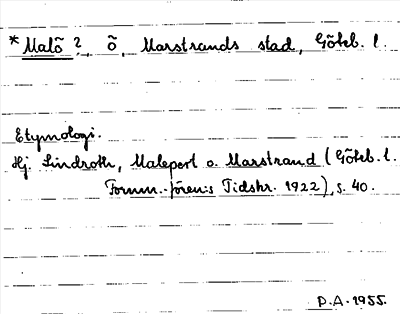 * Malö ?, ö, Marstrands stad, Göteb. l.
Etymologi.
Hj. Lindroth, Malepert o. Marstrand (Göteb. l.
Fornm.-fören:s Tidskr. 1922), s. 40.
P.A. 1955.